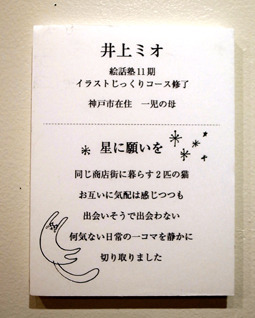 井上ミオ
絵話塾11期
イラストじっくりコース修了
神戸市在住　一児の母
星に願いを
同じ商店街に暮らす2匹の猫
お互いに気配は感じつつも
出会いそうで出会わない
何気ない日常の一コマを静かに
切り取りました